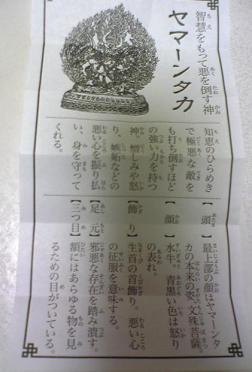 智慧をもって悪を倒す神
ヤマーンタカ
知恵のひらめき
で極悪な敵を
も打ち倒すほど
の強い力を持つ
神。憎しみや怒
り、嫉妬などの
悪い心を振り払
い、身を守って
くれる。
【頭】最上部の顔はヤマーンタ
カの本来の姿、文殊菩薩。
【顔】水牛。青黒い色は怒り
の表れ。
【飾り】生首の首飾り。悪い心
の征服を意味する。
【足元】邪悪な存在を踏み潰す。
【三つ目】額にはあらゆる物を見
るための目がついている。